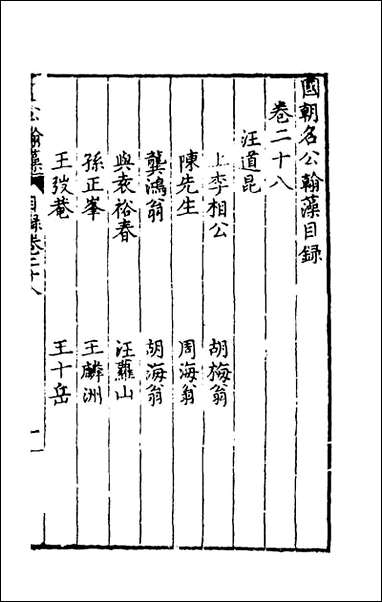 國朝名公翰藻目録
卷二十八
汪道昆
上李相公 胡梅翁
陳先生 周海翁
龔鴻翁 胡海翁
與袁裕春 汪蘿山
孫正峯 王麟洲
王弢菴 王十岳
名公翰藻 目録卷二十八 一